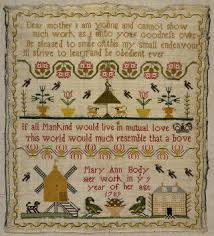 Dear mother I am young and cannot show
much work as I unto your goodness owe
Be pleased to smile on this my small endeavour
Ill strive to learn and be obedient ever
If all Mankind would live in mutual love
This world would much resemble that a bove
Mary Ann Body
her work in 9 y
year of her age
1789